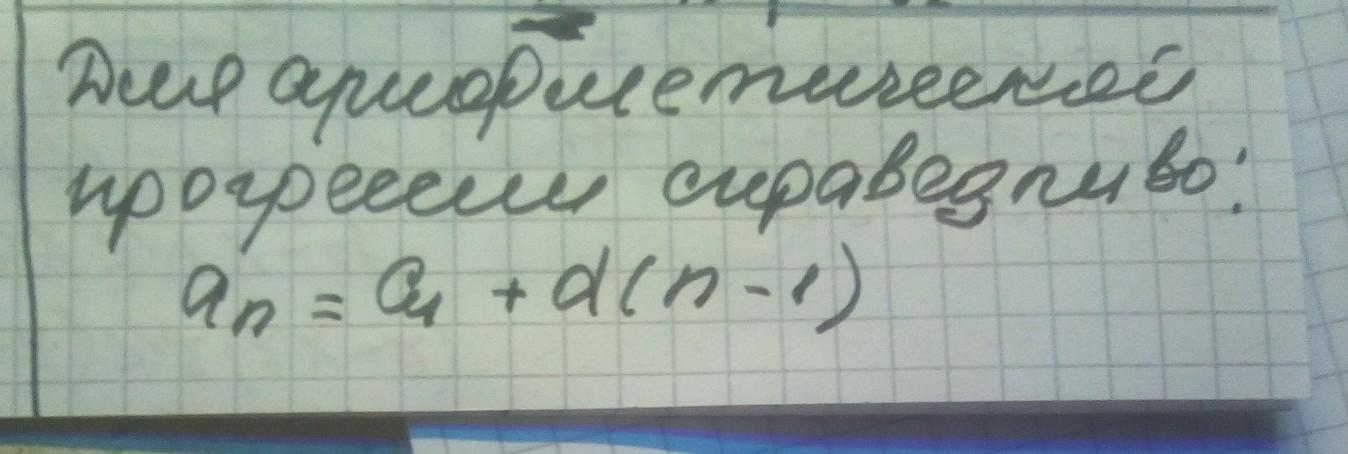 Для арифметической
прогрессии справедливо:
aₙ = a₁ + d(n-1)